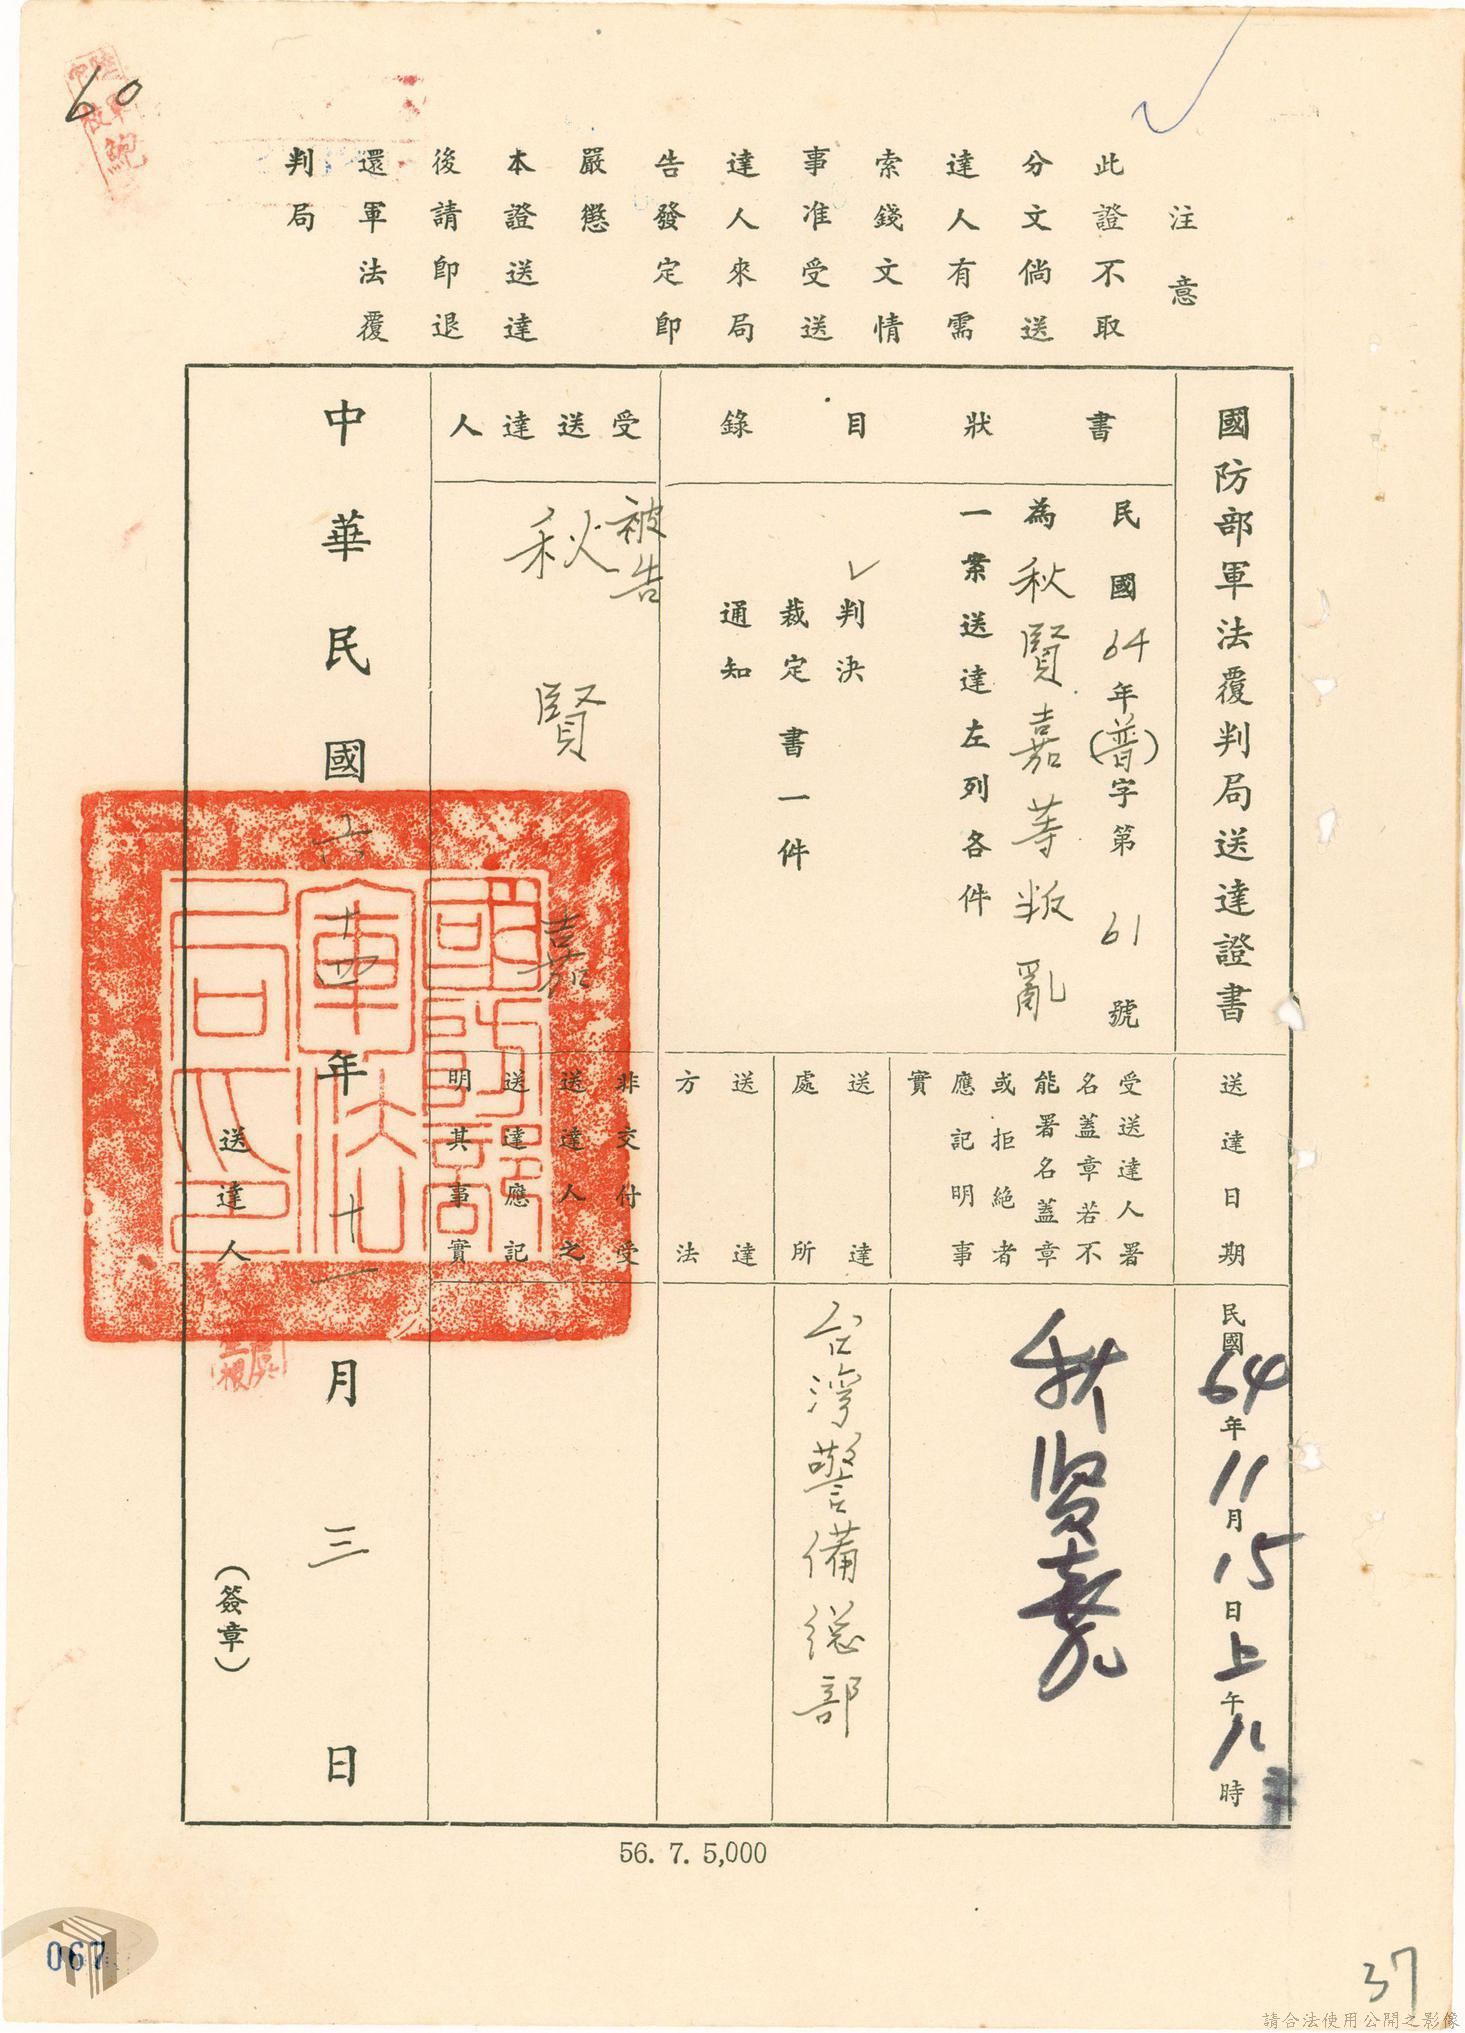 60
注意
此證不取
分文倘送
達人有需
索錢文情
事准受送
達人來局
告發定即
嚴懲
本證送達
後請即退
還軍法覆
判局
國防部軍法覆判局送達證書
書狀目錄
民國64年(普)字第61號
為秋賢嘉等叛亂
一案送達左列各件
✓判決
裁定書一件
通知
受送達人
被告
秋賢嘉
送達日期
民國64年11月15日上午11時
受送達人署
名蓋章若不
能署名蓋章
或拒絕者
應記明事
實
秋賢嘉
送達
處所
台灣警備總部
送達
方法
非交付受
送達人之
送達應記
明其事實
中華民國六十四年十一月三日
國防部軍法局印
送達人
(簽章)
56. 7. 5,000
067
37
請合法使用公開之影像